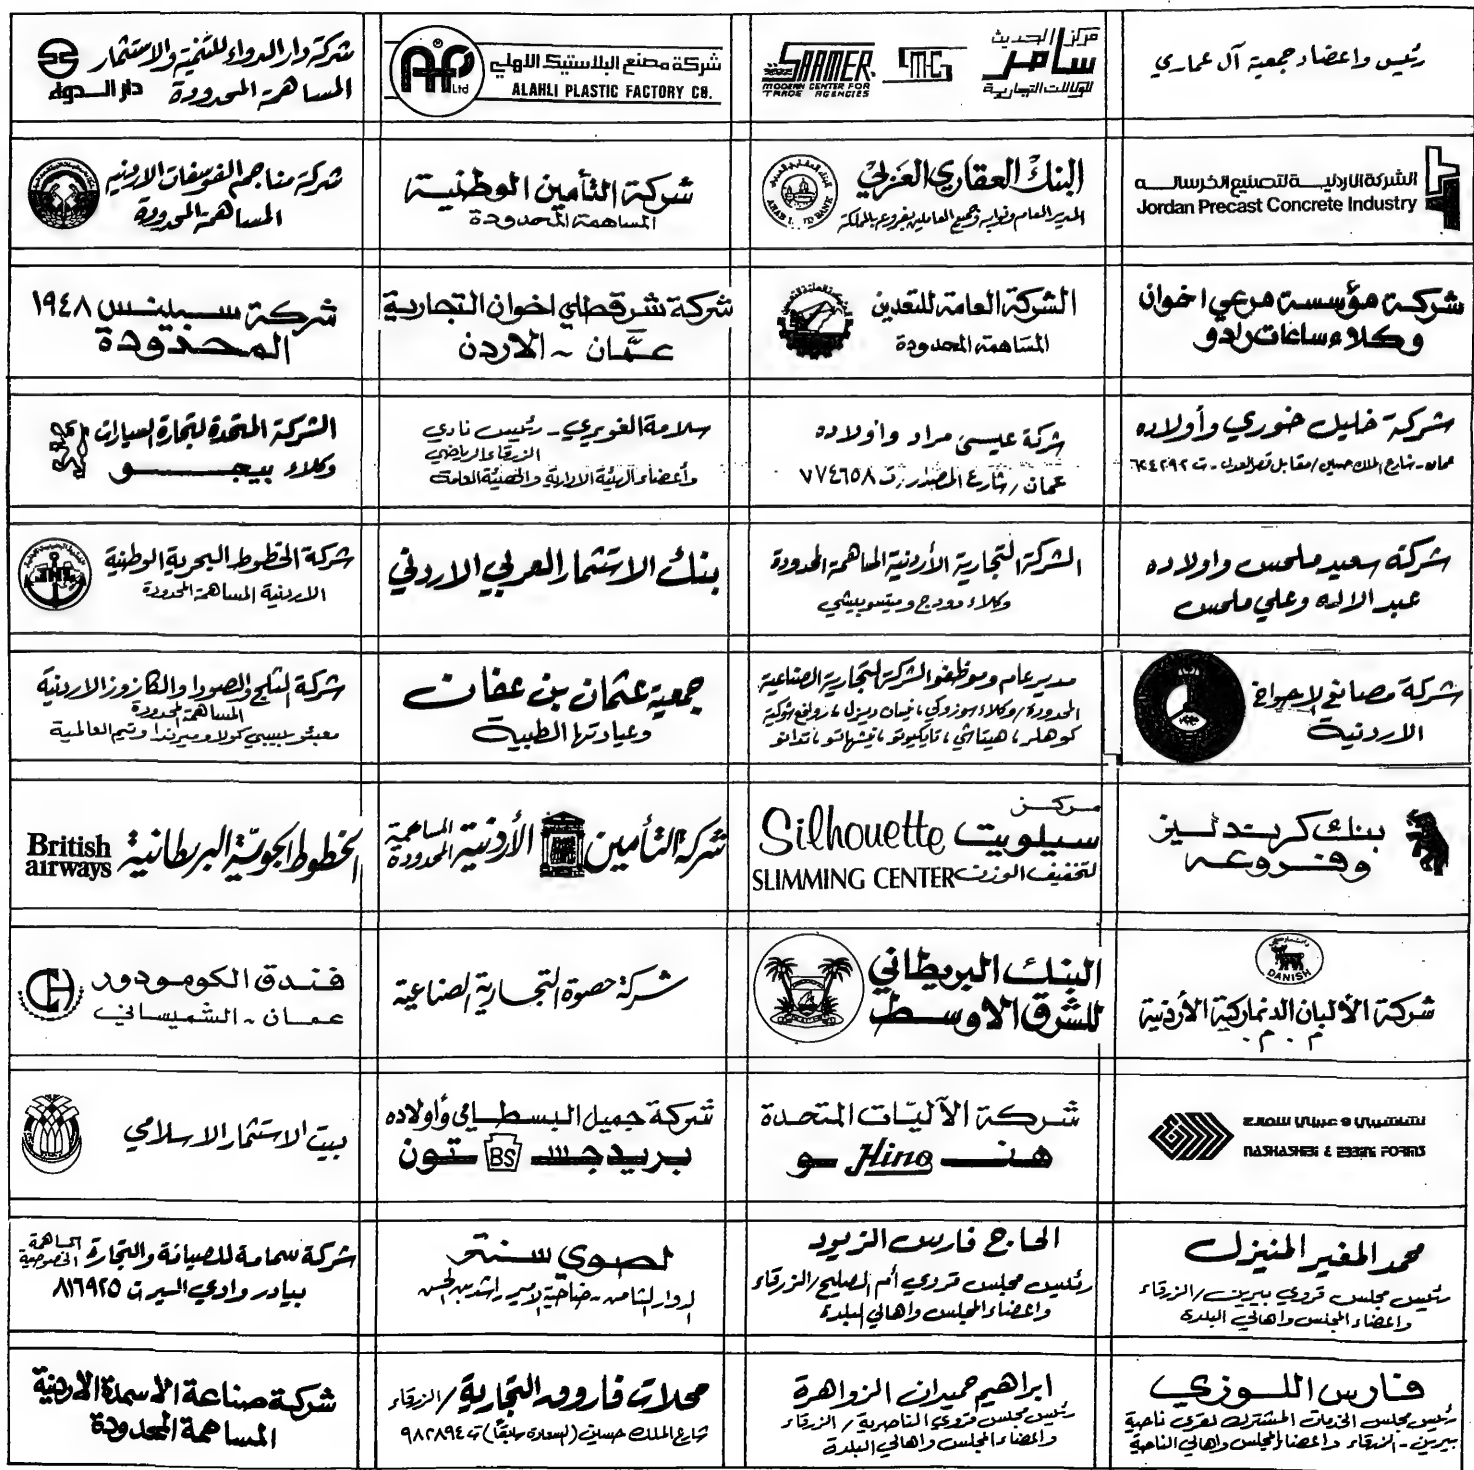 رئيس واعضاء جمعية آل عماري
مركز الحديث
سامر
للوكالات التجارية
SAAMER
MODERN CENTER FOR
TRADE AGENCIES
SMC
شركة مصنع البلاستيك الاهلي
ALAHLI PLASTIC FACTORY CO.
Ltd
شركة دار الدواء للتنمية والاستثمار
المساهمة المحدودة
دار الدواء
الشركة الاردنية لتصنيع الخرسانه
Jordan Precast Concrete Industry
البنك العقاري العربي
المدير العام ونوابه وجميع العاملين بفروع بالمملكة
شركة التأمين الوطنية
المساهمة المحدودة
شركة مناجم الفوسفات الاردنيه
المساهمة المحدودة
شركة مؤسسة مرعي اخوان
وكلاء ساعات رادو
الشركة العامة للتعدين
المساهمة المحدودة
شركة شرقطلي اخوان التجارية
عمّان - الاردن
شركة سبينس ١٩٤٨
المحدودة
شركة خليل خوري وأولاده
عمان - شارع الملك حسين / مقابل قصر العدل - ت ٦٢٤٢٩٢
شركة عيسى مراد واولاده
عمان / شارع المصدار ت ٧٧٤٦٥٨
سلامة الغويري - رئيس نادي
الزرقاء الرياضي
وأعضاء الهيئة الادارية والهيئة العامة
الشركة المتحدة لتجارة السيارات
وكلاء بيجو
شركة سعيد ملحس واولاده
عبد الاله وعلي ملحس
الشركة التجارية الأردنية المساهمة المحدودة
وكلاء دودج وميتسوبيشي
بنك الاستثمار العربي الاردني
شركة الخطوط البحرية الوطنية
الاردنية المساهمة المحدودة
JNL
شركة مصانع الاجواخ
الاردنية
مدير عام وموظفو الشركة التجارية الصناعية
المحدودة / وكلاء سوزوكي، نيسان ديزل، روافع شوكية
جمعية عثمان بن عفان
وعيادتها الطبية
شركة الثلج والصودا والكازوز الاردنية
المساهمة المحدودة
معبئو بيبسي كولا وميرندا وتيم العالمية
بنك كريندليز
وفروعه
مركز
سيلويت Silhouette
لتخفيف الوزن SLIMMING CENTER
شركة التأمين الأردنية المساهمة
المحدودة
الخطوط الجوية البريطانية British
airways
DANISH
شركة الألبان الدنماركية الأردنية
م . م .
البنك البريطاني
للشرق الاوسط
شركة حصوة التجارية الصناعية
فندق الكومودور
عمان - الشميساني
NASHASHIBI & EBBINI FORMS
شركة الآليات المتحدة
هنو Hino
شركة جميل البسطامي وأولاده
بريدجستون BS
بيت الاستثمار الاسلامي
محمد المغير المنيزل
رئيس مجلس قروي بيرين / الزرقاء
واعضاء المجلس واهالي البلدة
الحاج فارس الزيود
رئيس مجلس قروي أم الصليح / الزرقاء
واعضاء المجلس واهالي البلدة
لصوي سنتر
الدوار الثامن - ضاحية الامير راشد بن الحسن
شركة سمامة للصيانة والتجارة المساهمة
الخصوصية
بيادر وادي السير ت ٨١٦٩٢٥
فارس اللوزي
رئيس مجلس الخدمات المشترك لقرى ناحية
بيرين - الزرقاء واعضاء المجلس واهالي الناحية
ابراهيم حميدان الزواهرة
رئيس مجلس قروي الناصرية / الزرقاء
واعضاء المجلس واهالي البلدة
محلات فاروق التجارية / الزرقاء
شارع الملك حسين (السعادة سابقا) ت ٩٨٢٨٩٤
شركة صناعة الاسمدة الاردنية
المساهمة المحدودة